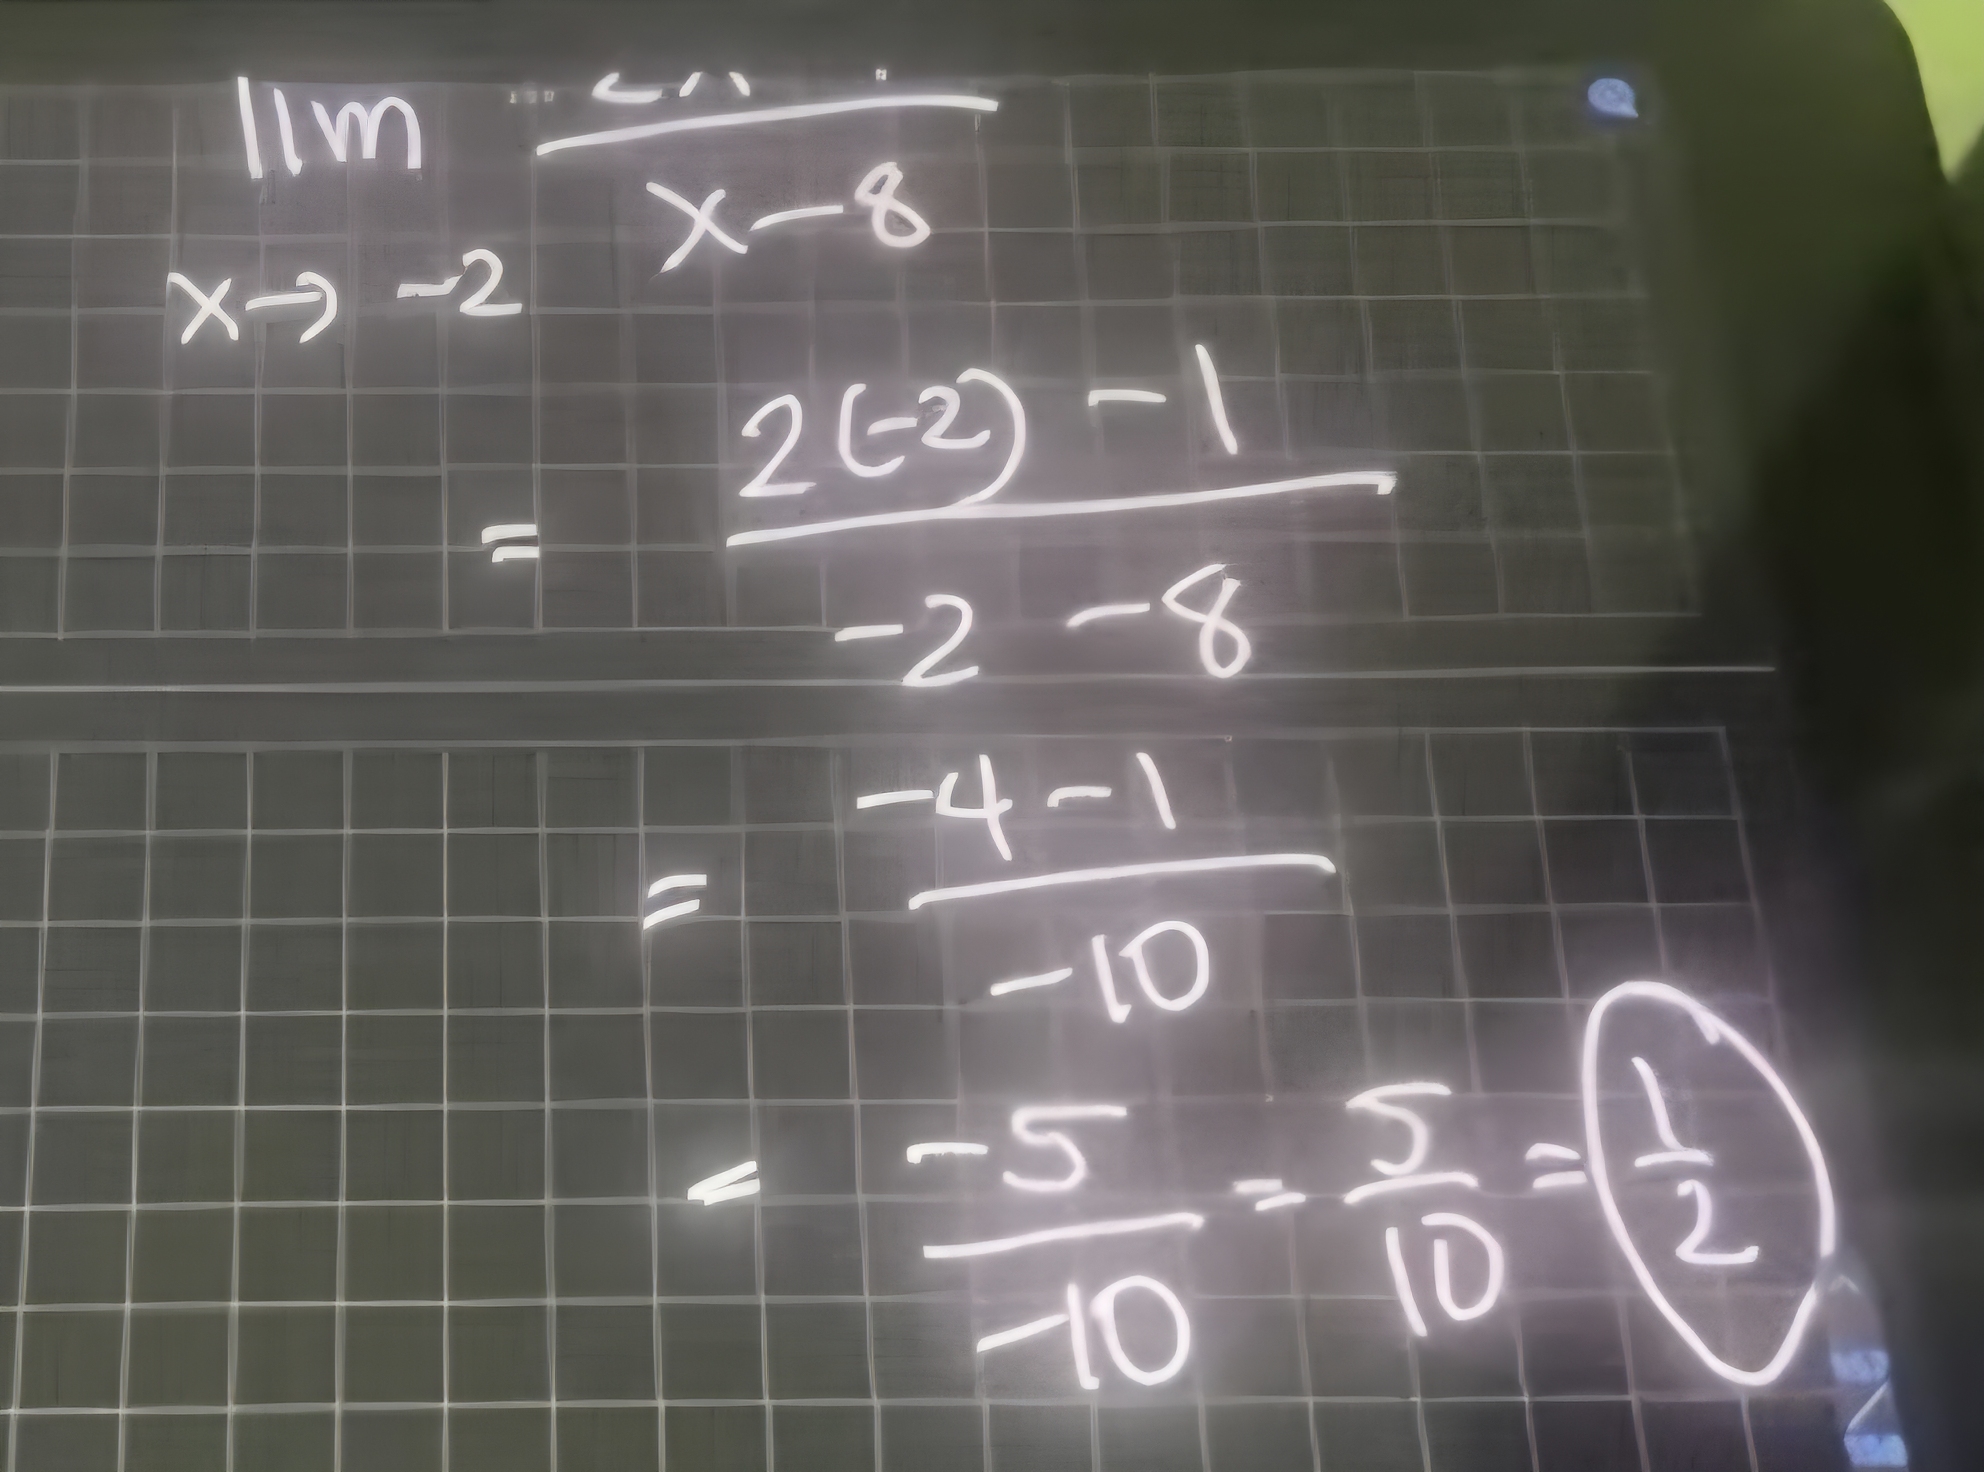 lim
x → -2 x - 8
= 2(-2) - 1 / -2 - 8
= -4 - 1 / -10
= -5 / -10 = 5 / 10 = 1 / 2